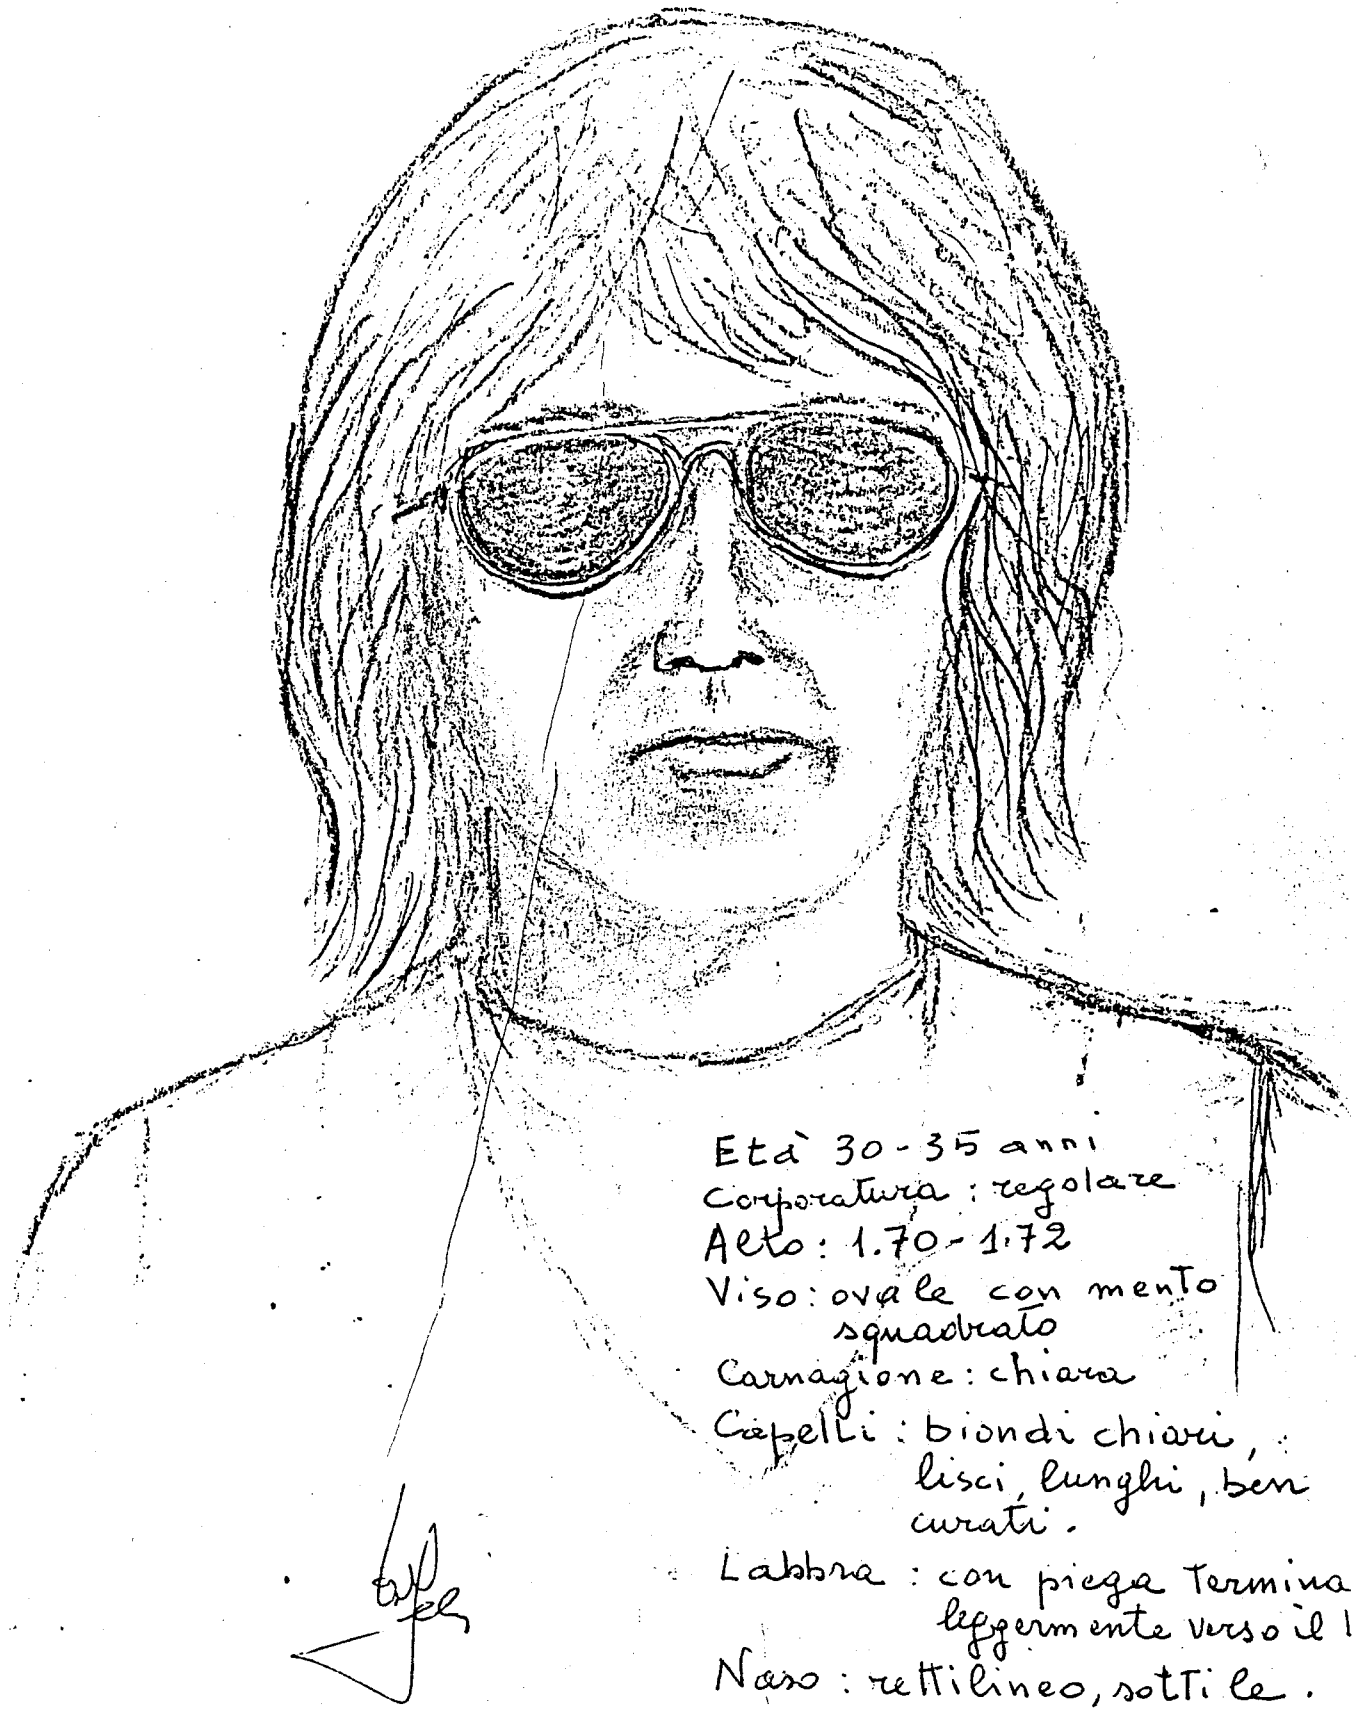 Età 30-35 anni
Corporatura : regolare
Alto : 1.70-1.72
Viso : ovale con mento
squadrato
Carnagione : chiara
Capelli : biondi chiari,
lisci, lunghi, ben
curati.
Labbra : con piega Termina
leggermente verso il
Naso : rettilineo, sottile.